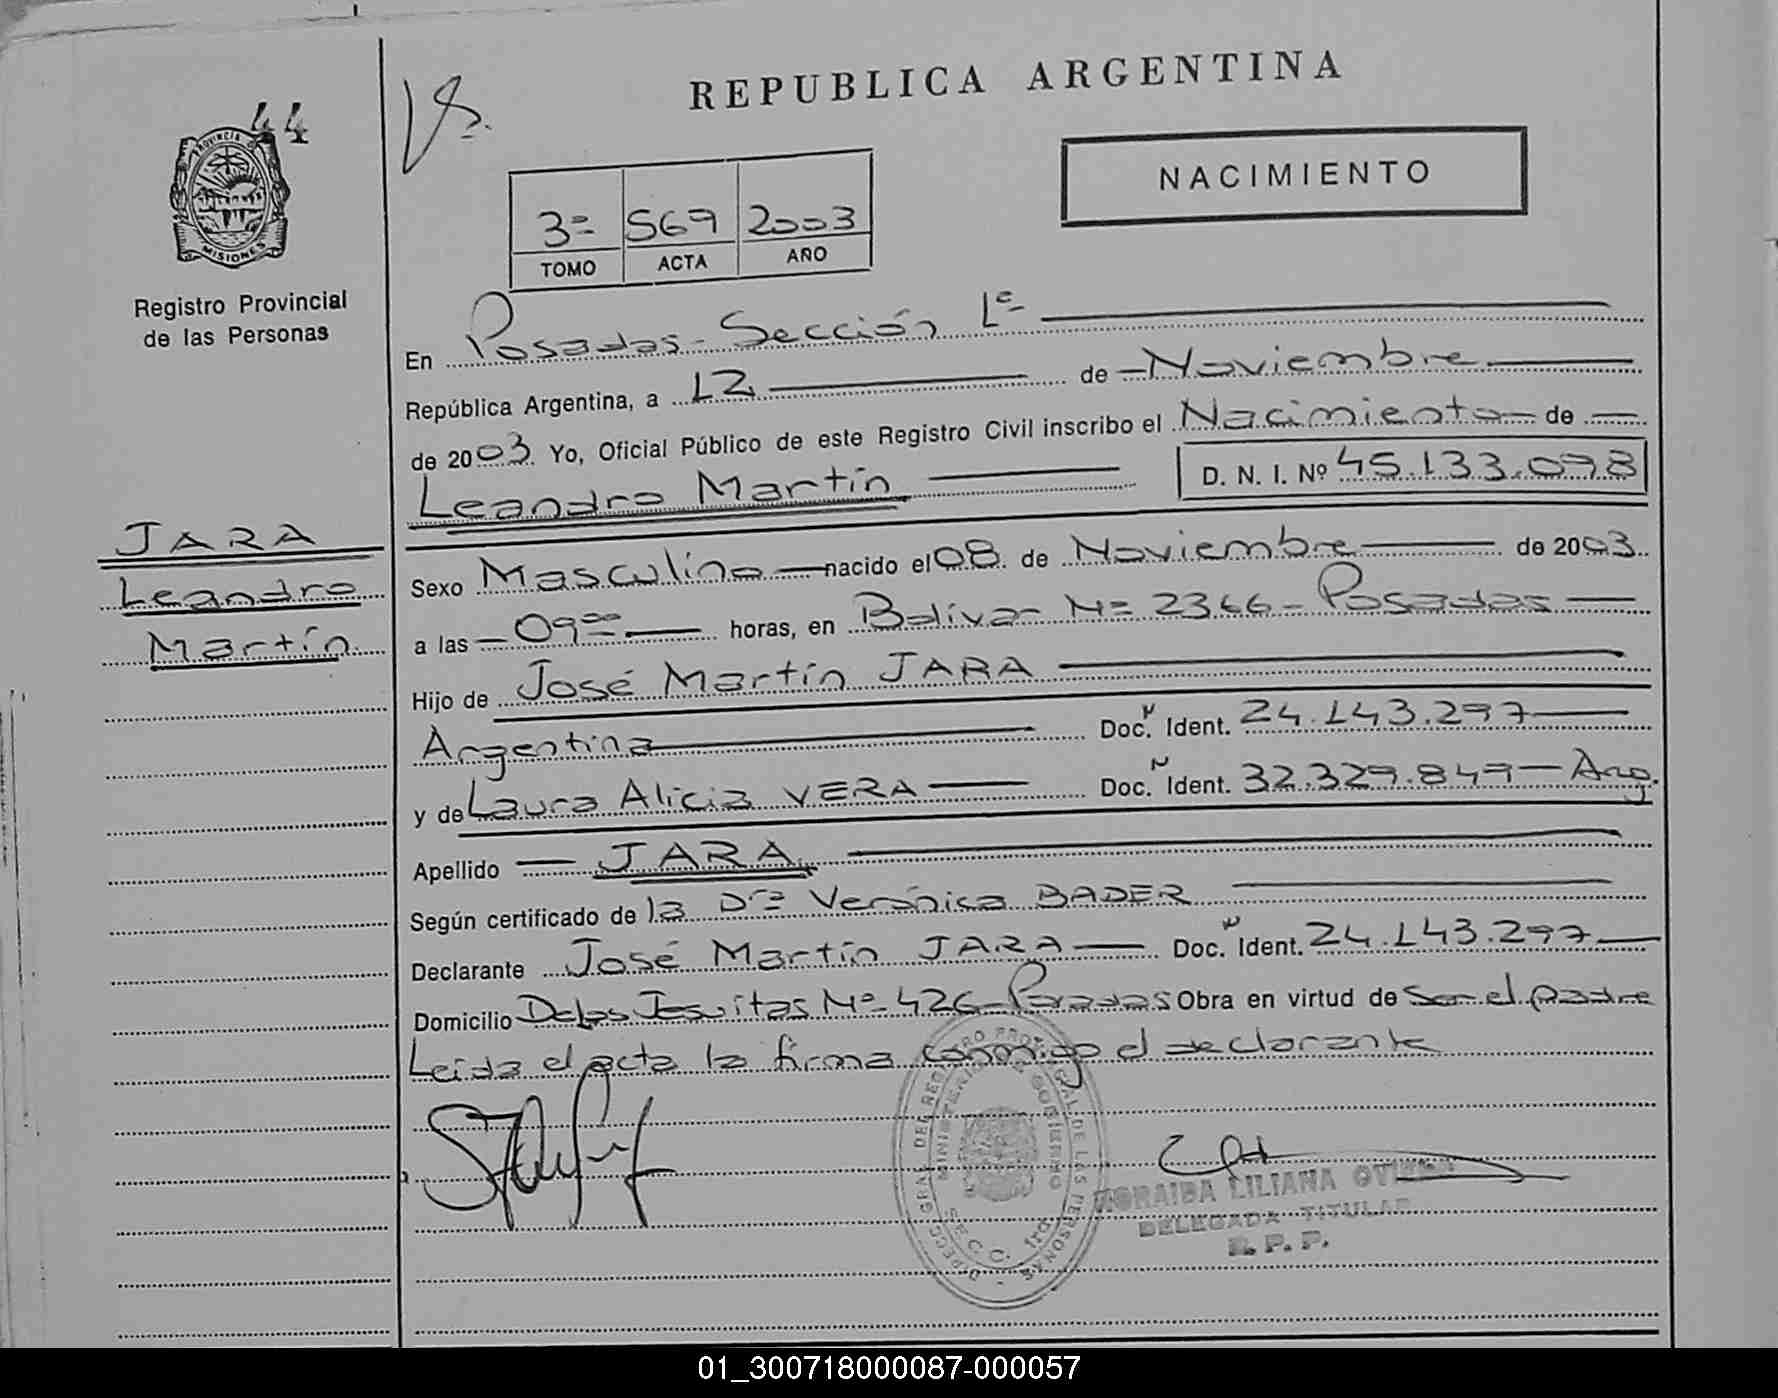 44
REPUBLICA ARGENTINA
NACIMIENTO
PROVINCIA
MISIONES
3ª 569 2003
TOMO ACTA AÑO
Registro Provincial
de las Personas
En Posadas - Sección 1ª
República Argentina, a 12 de Noviembre
de 2003 Yo, Oficial Público de este Registro Civil inscribo el Nacimiento de
Leandro Martín D. N. I. Nº 45.133.098
JARA
Leandro
Martín
Sexo Masculino nacido el 08 de Noviembre de 2003
a las 09⁰⁰ horas, en Bolivar Nº 2366 - Posadas
Hijo de José Martín JARA
Argentina Doc. N Ident. 24.143.297
y de Laura Alicia VERA Doc. N Ident. 32.329.849 - Arg.
Apellido JARA
Según certificado de la Drª Verónica BADER
Declarante José Martín JARA Doc. N Ident. 24.143.297
Domicilio De los Jesuitas Nº 426 - Posadas Obra en virtud de Ser el padre
Leida el acta la firma conmigo el declarante
DIRECC. GRAL. DEL REGISTRO PROVINCIAL DE LAS PERSONAS
MINISTERIO DE GOBIERNO
SECC. 1ra
LILIANA
DELEGADA TITULAR
R. P. P.
01_300718000087-000057